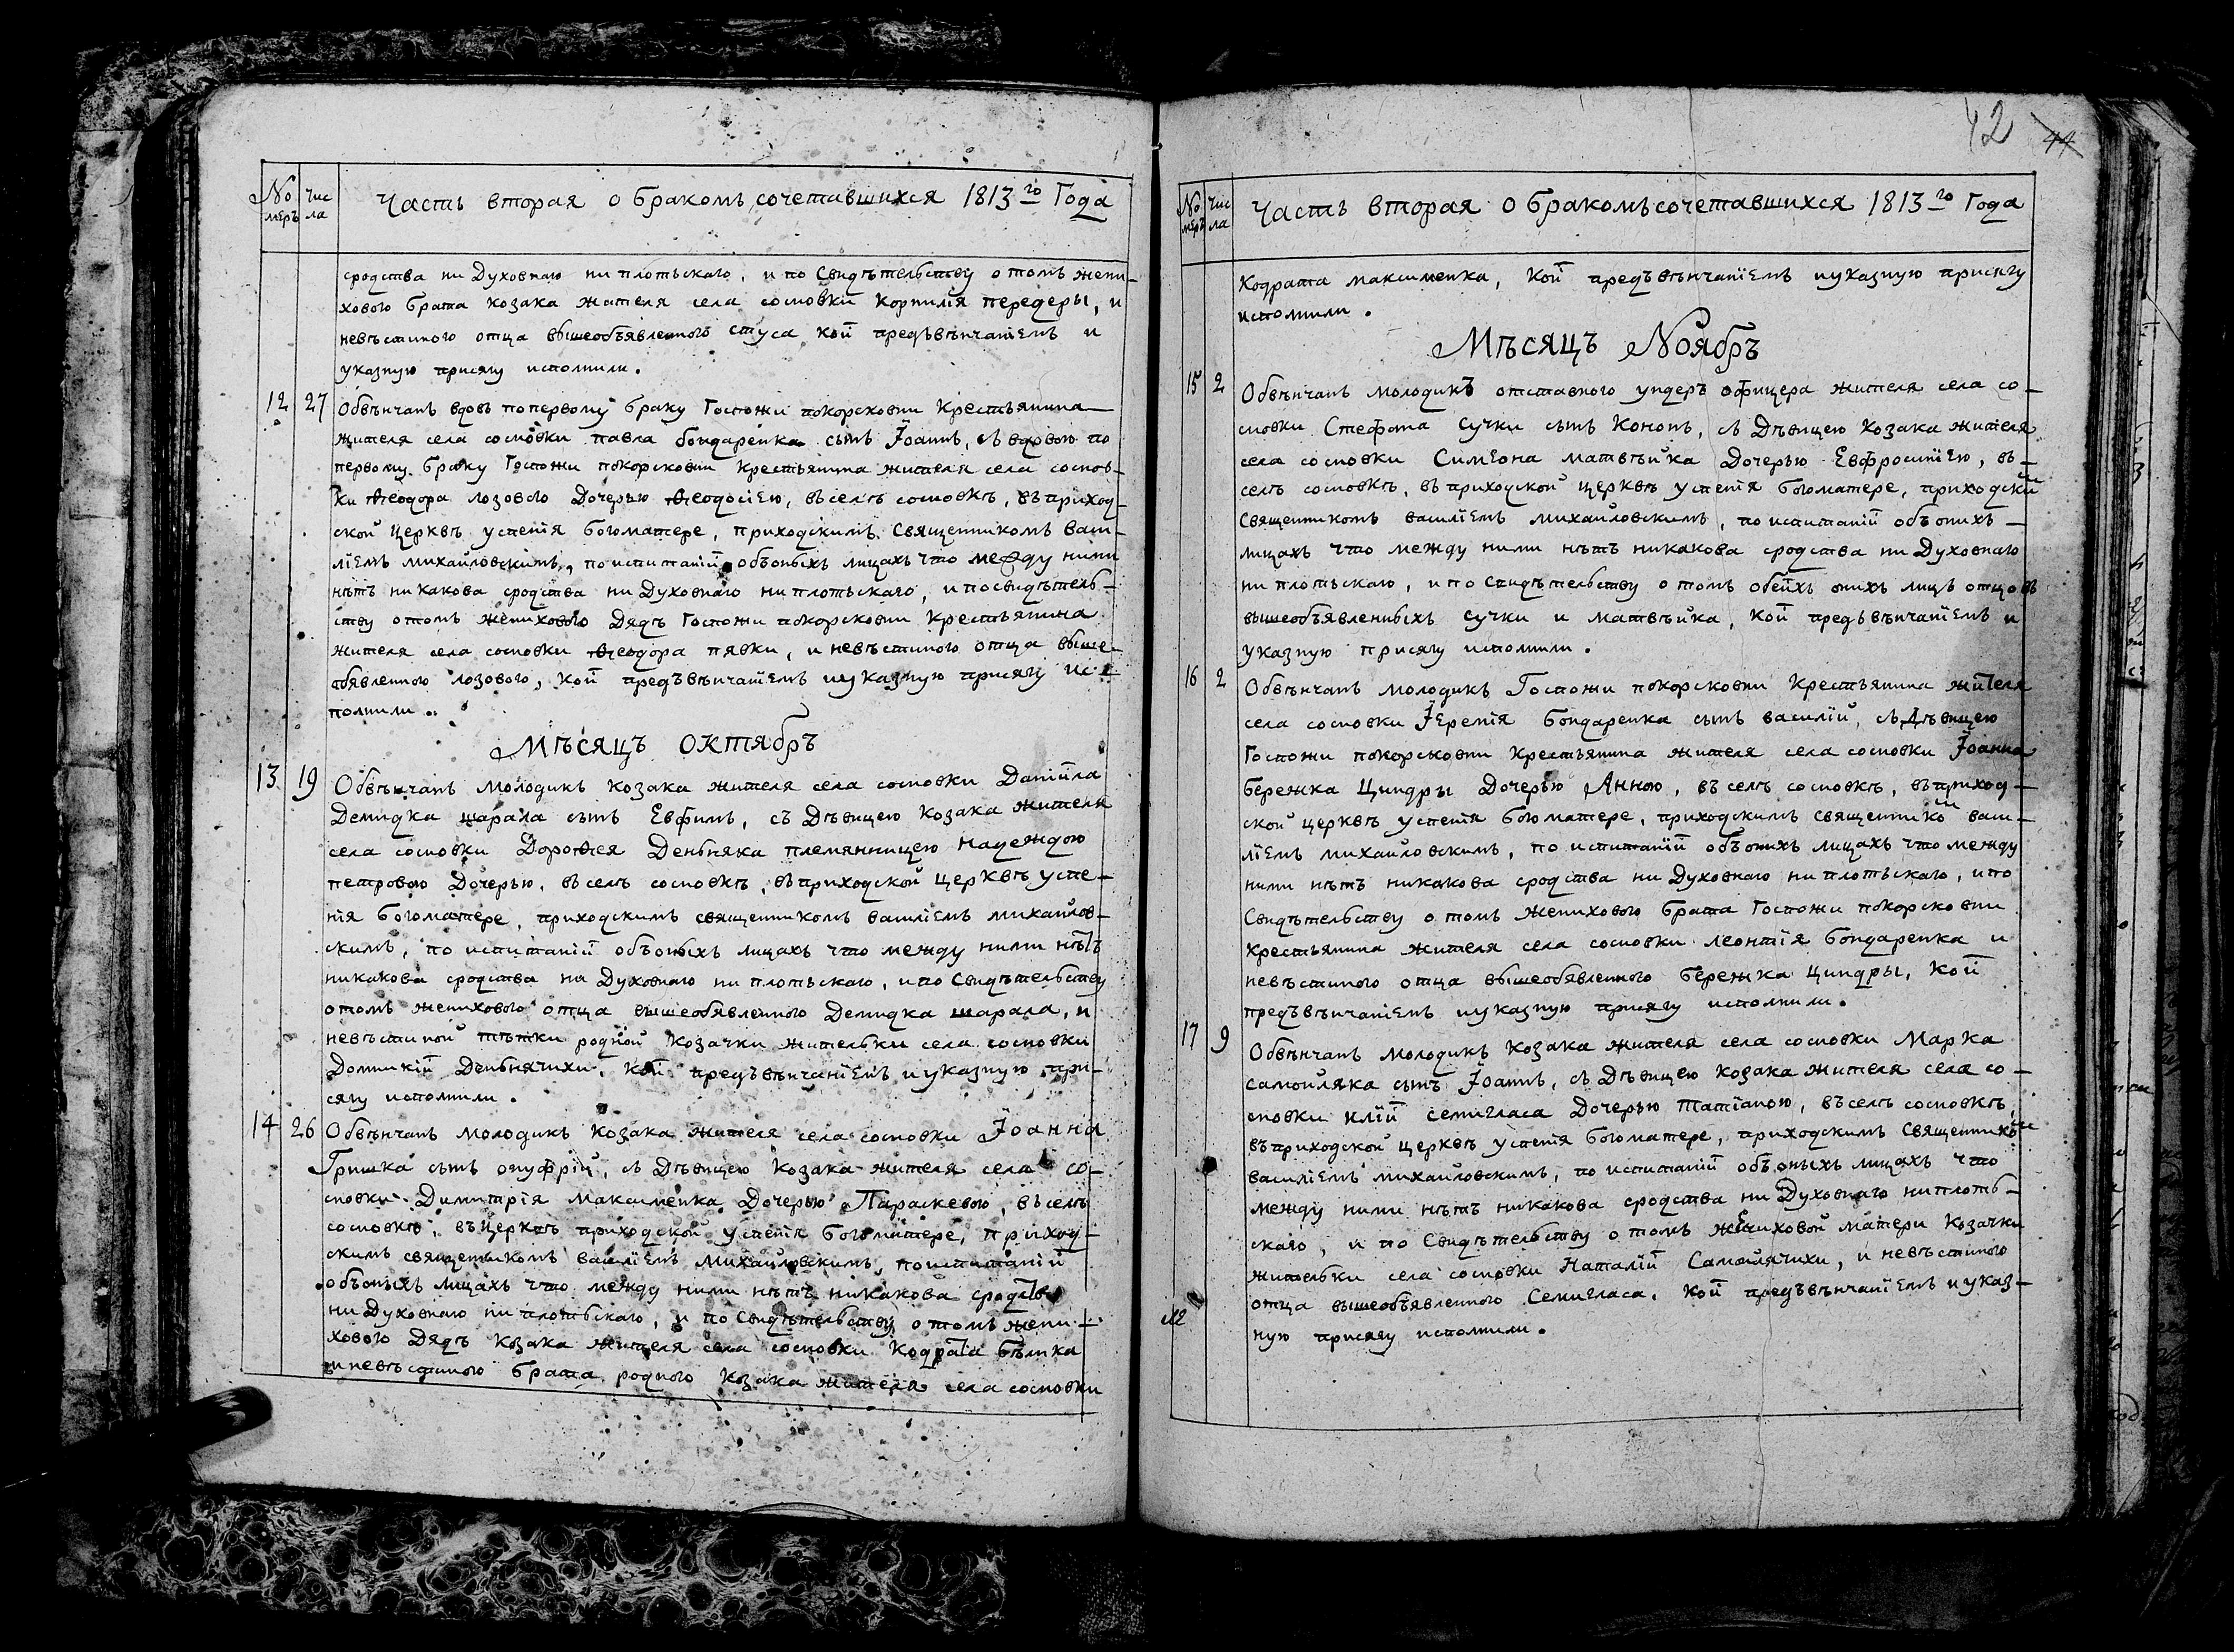 No меръ
Чис ла
Часть вторая о бракомъ сочетавшихся 1813го Года
сродства ни Духовнаго ни плотьскаго, и по Свидѣтельству о томъ жени-
хового брата козака жителя села сосновки Корнилія передеры, и
невѣстиного отца вышеобъявленного стуса кои предъвѣнчаніемъ и
указную присягу исполнили.
12 27 Обвѣнчанъ вдовъ попервому браку Госпожи покорсковни Крестьянина
жителя села сосновки павла бондаренка сынъ Іоаннъ, съ вдовою по
первому браку Госпожи покорсковни крестьянина жителя села соснов-
ки Ѳеодора лозового Дочерью Ѳеодосіею, въ селѣ сосновкѣ, въ приход-
ской Церквѣ успенія богоматере, приходскимъ Священникомъ васи-
ліемъ михайловскимъ, по испитаніи объ оныхъ лицахъ что между ними
нѣтъ никакова сродства ни Духовнаго ни плотьскаго, и посвидѣтель-
ству отомъ женихового Дядѣ Госпожи покорсковни Крестьянина
жителя села сосновки Ѳеодора пявки, и невѣстиного отца выше-
обявленного лозового, кои предъвѣнчаніемъ и указную присягу ис-
полнили.
Мѣсяцъ Октябръ
13 19 Обвѣнчанъ Молодикъ Козака жителя села сосновки Даніила
Демидка шарала сынъ Евфимъ, съ Дѣвицею Козака жителя
села сосновки Дороѳея Деньбняка племянницею надеждою
петровою Дочерью, въ селѣ сосновкѣ, въ приходской Церквѣ успе-
нія богоматере, приходскимъ священникомъ василіемъ михайлов-
скимъ, по испитаніи объоныхъ лицахъ что между ними нѣтъ
никакова сродства ни Духовнаго ни плотьскаго, и по Свидѣтельству
отомъ женихового отца вышеобявленного Демидка шарала, и
невѣстиной тѣтки родной Козачки жительки села сосновки
Домникіи Деньбнячихи, кои предъвѣнчаніемъ и указную при-
сягу исполнили.
14 26 Обвѣнчанъ Молодикъ Козака жителя села сосновки Іоанна
Гришка сынъ онуфрій, съ Дѣвицею Козака жителя села со-
сновки Димитрія максименка Дочерью Параскевою, въ селѣ
сосновкѣ, въ Церквѣ приходской успенія богоматере, приход-
скимъ священникомъ василіемъ михайловскимъ, по испитаніи
объоныхъ лицахъ что между ними нѣтъ никакова сродства
ни Духовнаго ни плотьскаго, и по Свидѣтельству о томъ жени-
хового Дядѣ Козака жителя села сосновки Кодрата
и невѣстиного брата родного Козака жителя села сосновки
42 44
No меръ
Чис ла
Часть вторая о бракомъ сочетавшихся 1813го Года
Кодрата максименка, кои предъвѣнчаніемъ и указную присягу
исполнили.
Мѣсяцъ Ноябръ
15 2 Обвѣнчанъ молодикъ отставного ундеръ офицера жителя села со-
сновки Стефана Сучки сынъ Кононъ, съ Дѣвицею Козака жителя
села сосновки Симеона матвѣйка Дочерью Евфросиніею, въ
селѣ сосновкѣ, въ приходской церквѣ успенія богоматере, приходским
Священникомъ василіемъ михайловскимъ, по испитаніи объ онихъ
лицахъ что между ними нѣтъ никакова сродства ни Духовнаго
ни плотьскаго, и по Свидѣтельству о томъ обеихъ онихъ лицъ отцовъ
вышеобъявленныхъ сучки и матвѣйка, кои предъвѣнчаніемъ и
указную присягу исполнили.
16 2 Обвѣнчанъ молодикъ Госпожи покорсковни Крестьянина жителя
села сосновки Іереmія бондаренка сынъ василій, съ Дѣвицею
Госпожи покорсковни Крестьянина жителя села сосновки Іоанна
бережка Циндры Дочерью Анною, въ селѣ сосновкѣ, въ приход-
ской церквѣ успенія богоматере, приходскимъ священником васи-
ліемъ михайловскимъ, по испитаніи объ онихъ лицахъ что между
ними нѣтъ никакова сродства ни Духовнаго ни плотьскаго, и по
Свидѣтельству о томъ женихового брата Госпожи покорсковни
Крестьянина жителя села сосновки леонтія бондаренка и
невѣстиного отца вышеобявленного бережка циндры, кои
предъвѣнчаніемъ и указную присягу исполнили.
17 9 Обвѣнчанъ молодикъ козака жителя села сосновки Марка
самойляка сынъ Іоаннъ, съ Дѣвицею козака жителя села со-
сновки иліи семигласа Дочерью татіаною, въ селѣ сосновкѣ,
въ приходской церквѣ успенія богоматере, приходскимъ Священником
василіемъ михайловскимъ, по испитаніи объ оныхъ лицахъ что
между ними нѣтъ никакова сродства ни Духовнаго ни плоть-
скаго, и по Свидѣтельству о томъ жениховой матери козачки
жительки села сосновки Наталіи Самойлячихи, и невѣстиного
отца вышеобъявленного Семигласа, кои предъвѣнчаніемъ и указ-
ную присягу исполнили.